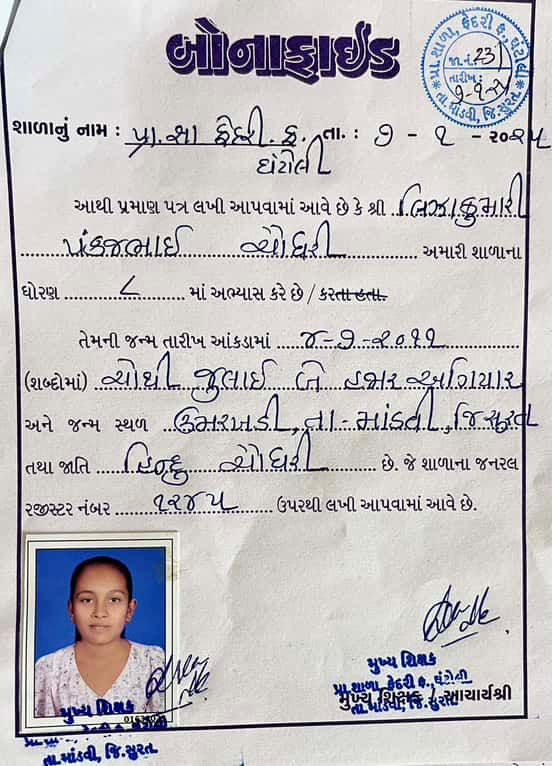 બોનાફાઇડ
પ્રા.શાળા, ફેદરી ફ. ઘંટોલી
જા.નં. 231
તારીખ:
તા.માંડવી, જિ.સુરત.
શાળાનું નામ : પ્રા.સા ફેદરી. ફ. તા. : ૭ - ૧ - ૨૦૨૫
ઘંટોલી
આથી પ્રમાણ પત્ર લખી આપવામાં આવે છે કે શ્રી
પંકજભાઈ ચૌધરી અમારી શાળાના
ધોરણ ૮ માં અભ્યાસ કરે છે / કરતા હતા.
તેમની જન્મ તારીખ આંકડામાં ૪-૭-૨૦૧૧
(શબ્દોમાં) ચોથી જુલાઈ બે હજાર અગિયાર
અને જન્મ સ્થળ ઉમરખડી, તા-માંડવી, જિ સુરત
તથા જાતિ હિન્દુ ચૌધરી છે. જે શાળાના જનરલ
રજીસ્ટર નંબર ૧૨૪૫ ઉપરથી લખી આપવામાં આવે છે.
મુખ્ય શિક્ષક
પ્રા.શાળા, ફેદરી ફ. ઘંટોલી
મુખ્ય શિક્ષક / આચાર્યશ્રી
તા.માંડવી, જિ.સુરત.
મુખ્ય શિક્ષક
તા.માંડવી, જિ.સુરત.